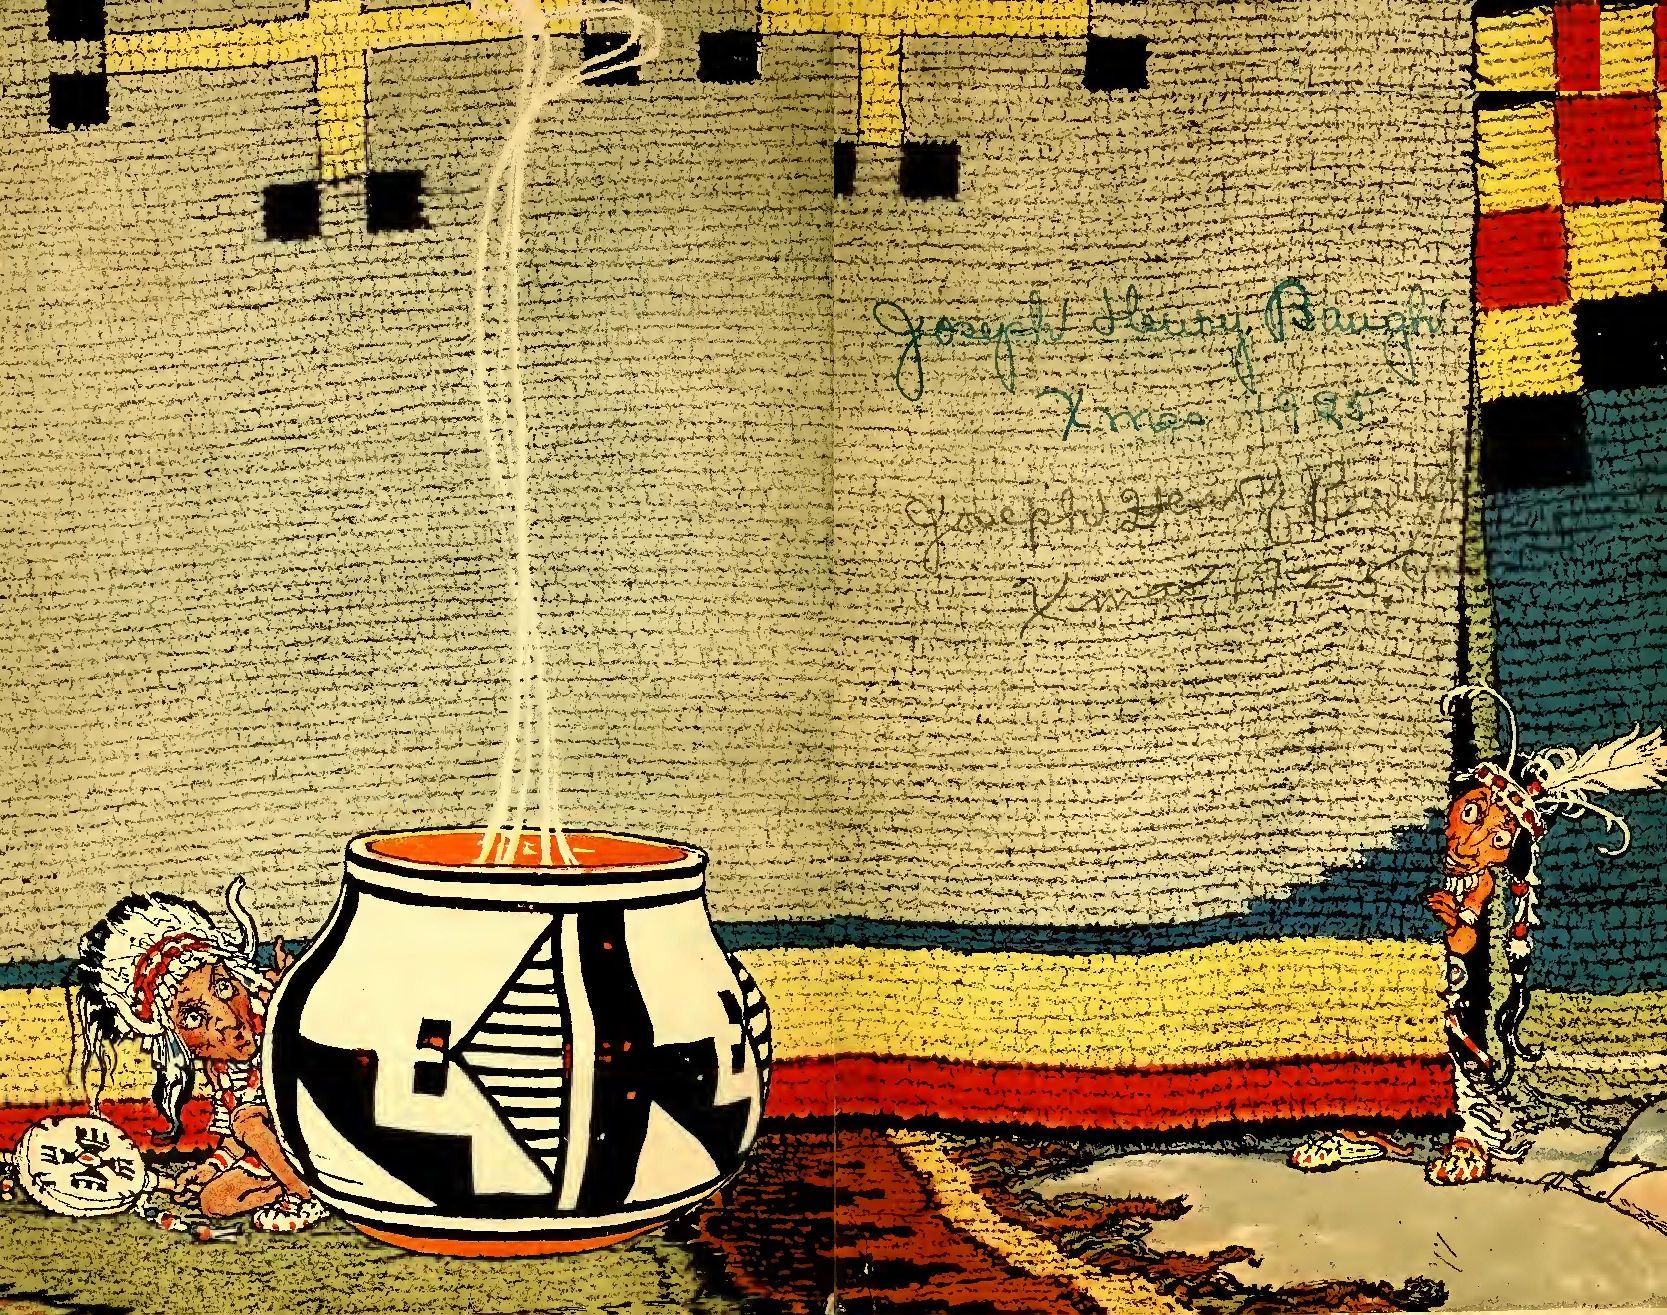 Joseph Henry Baugh
Xmas 1925
Joseph Henry
Xmas 1925